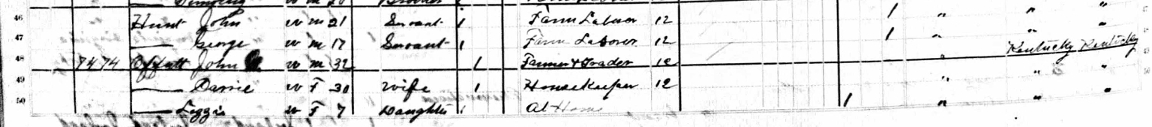 46 Hunt John w m 21 Servant 1 Farm Laborer 12 1 " " "
47 — George w m 17 Servant 1 Farm Laborer 12 1 " " "
48 74 74 Offutt John w m 32 1 Farmer & Trader 12 Kentucky Kentucky
49 — w F 30 Wife 1 Housekeeper 12 " " "
50 — Lizzie w F 7 Daughter 1 At Home 1 " " "